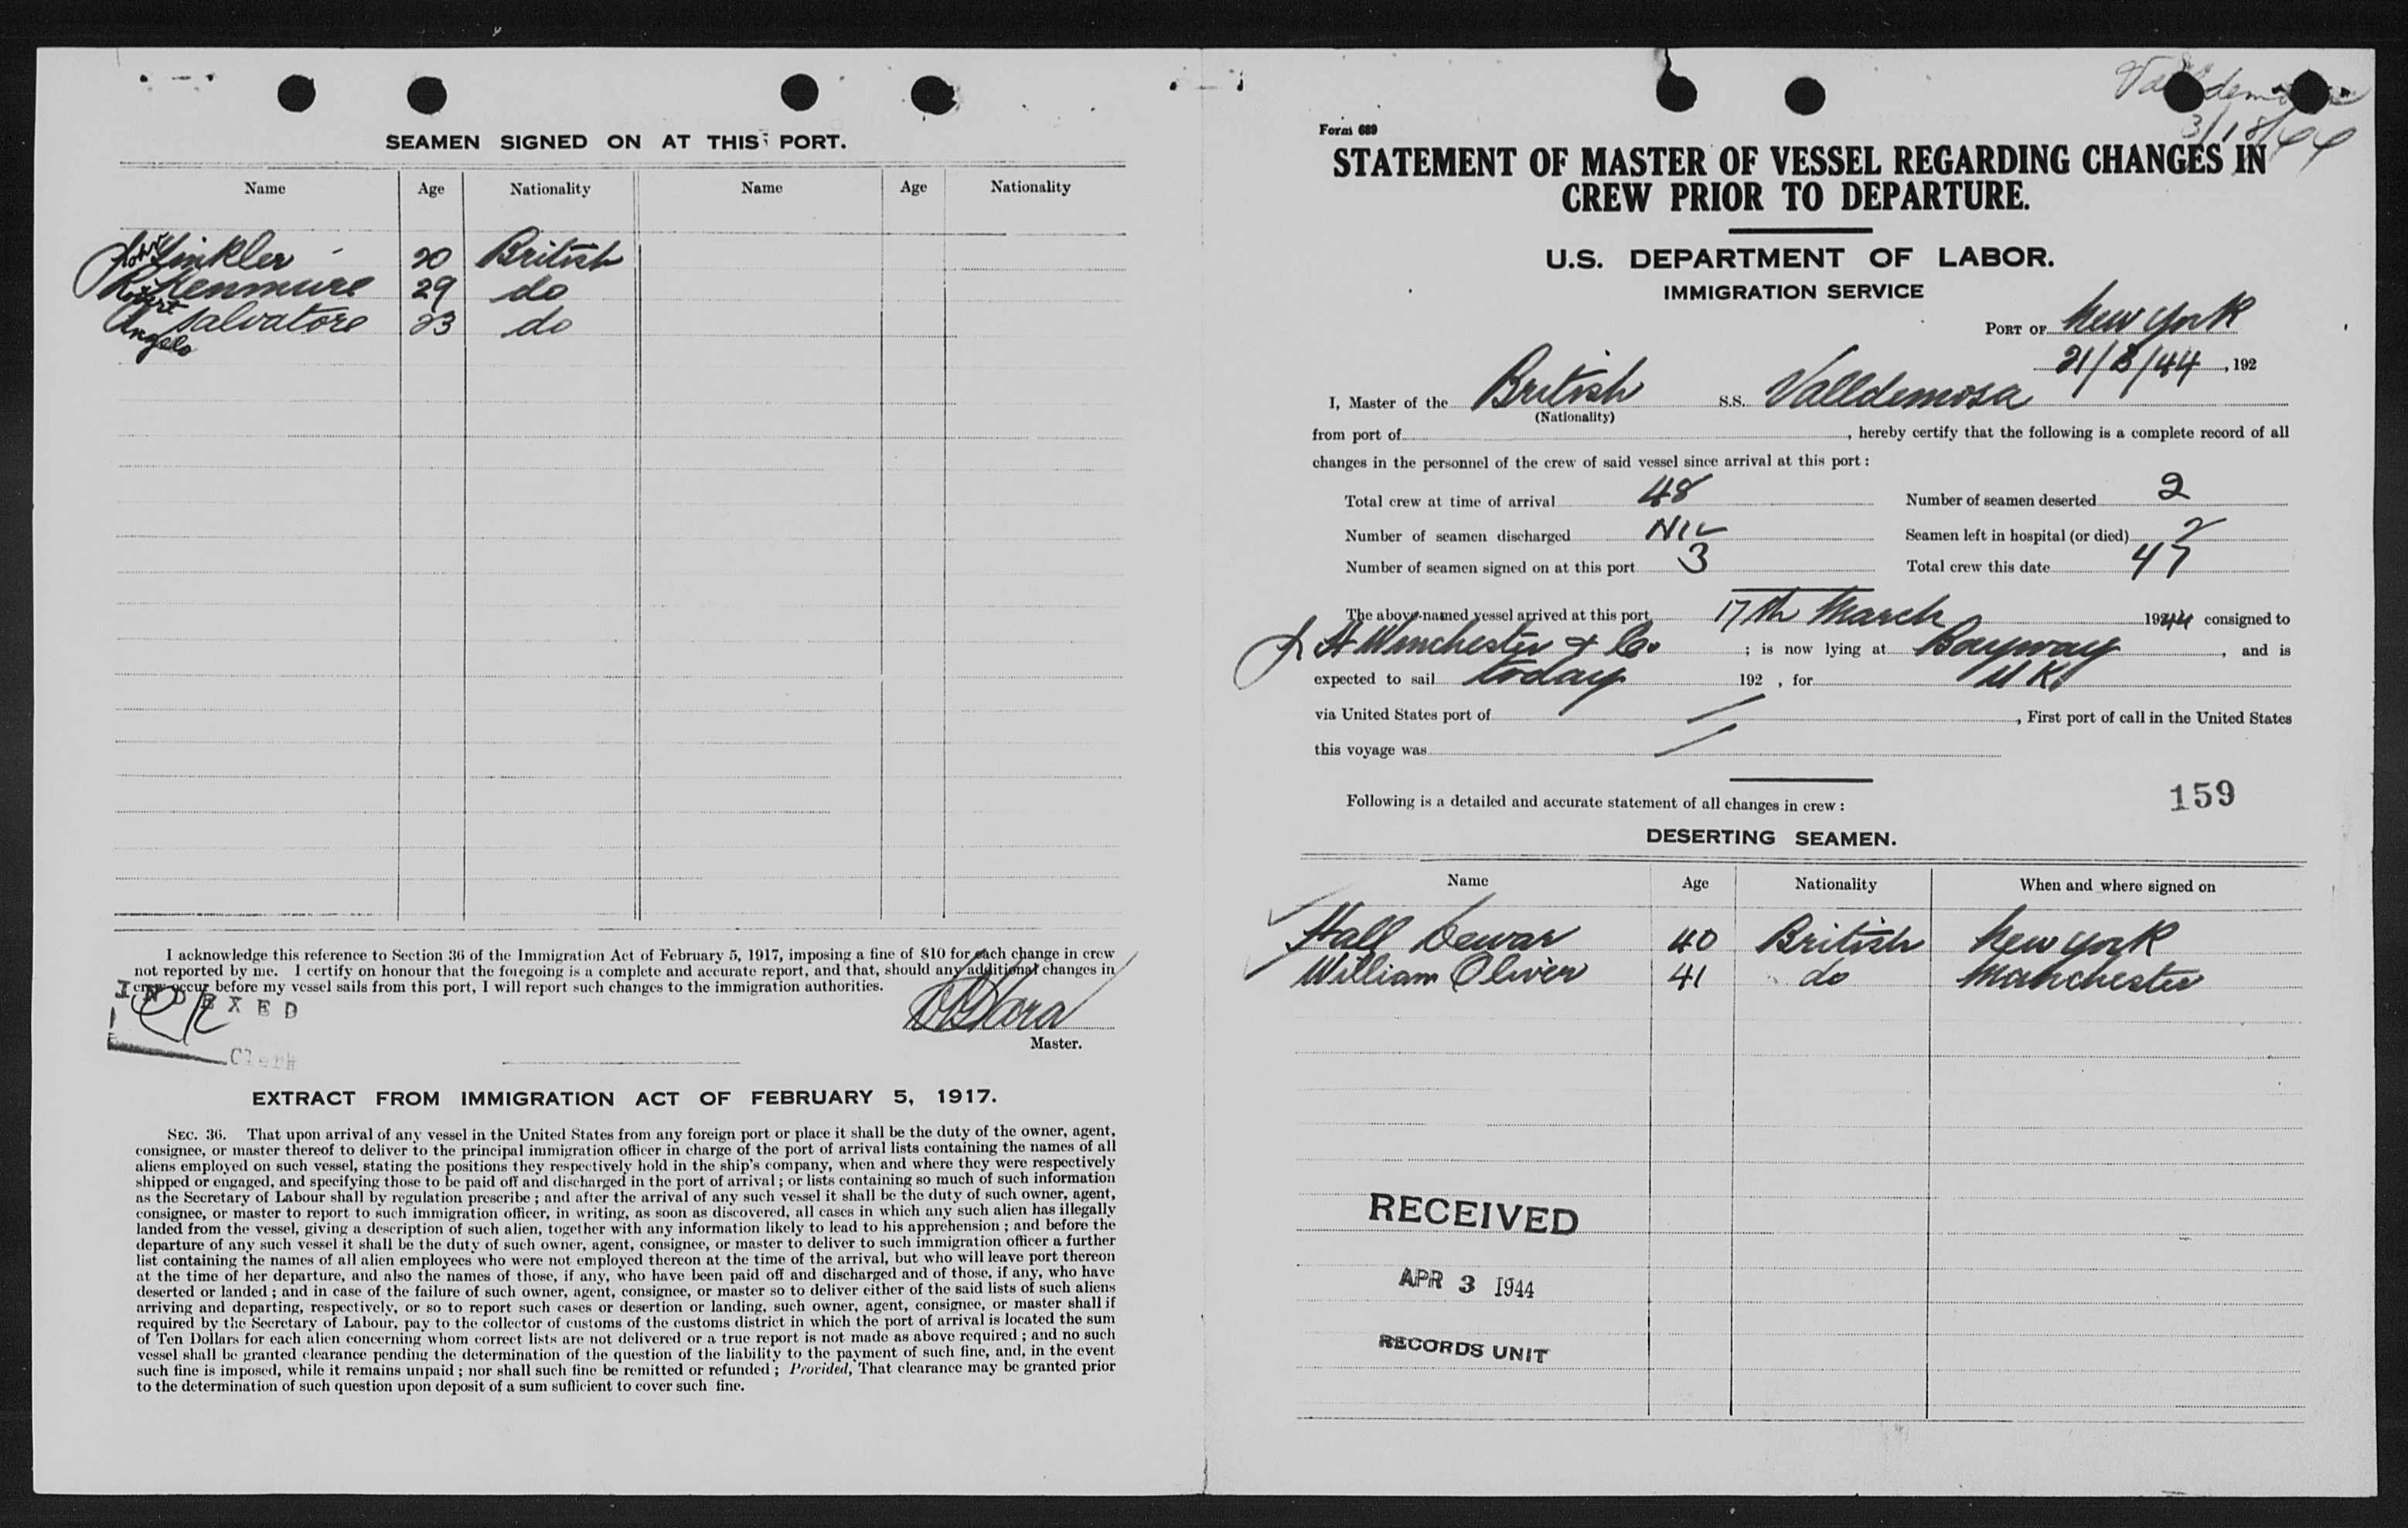 SEAMEN SIGNED ON AT THIS PORT.
Name Age Nationality Name Age Nationality
Linkler 20 British
Robert Kenmure 29 do
Angelo Salvatore 23 do
I acknowledge this reference to Section 36 of the Immigration Act of February 5, 1917, imposing a fine of $10 for each change in crew
not reported by me. I certify on honour that the foregoing is a complete and accurate report, and that, should any additional changes in
crew occur before my vessel sails from this port, I will report such changes to the immigration authorities.
INDEXED
Clerk
Master.
EXTRACT FROM IMMIGRATION ACT OF FEBRUARY 5, 1917.
SEC. 36. That upon arrival of any vessel in the United States from any foreign port or place it shall be the duty of the owner, agent,
consignee, or master thereof to deliver to the principal immigration officer in charge of the port of arrival lists containing the names of all
aliens employed on such vessel, stating the positions they respectively hold in the ship's company, when and where they were respectively
shipped or engaged, and specifying those to be paid off and discharged in the port of arrival; or lists containing so much of such information
as the Secretary of Labour shall by regulation prescribe; and after the arrival of any such vessel it shall be the duty of such owner, agent,
consignee, or master to report to such immigration officer, in writing, as soon as discovered, all cases in which any such alien has illegally
landed from the vessel, giving a description of such alien, together with any information likely to lead to his apprehension; and before the
departure of any such vessel it shall be the duty of such owner, agent, consignee, or master to deliver to such immigration officer a further
list containing the names of all alien employees who were not employed thereon at the time of the arrival, but who will leave port thereon
at the time of her departure, and also the names of those, if any, who have been paid off and discharged and of those, if any, who have
deserted or landed; and in case of the failure of such owner, agent, consignee, or master so to deliver either of the said lists of such aliens
arriving and departing, respectively, or so to report such cases or desertion or landing, such owner, agent, consignee, or master shall if
required by the Secretary of Labour, pay to the collector of customs of the customs district in which the port of arrival is located the sum
of Ten Dollars for each alien concerning whom correct lists are not delivered or a true report is not made as above required; and no such
vessel shall be granted clearance pending the determination of the question of the liability to the payment of such fine, and, in the event
such fine is imposed, while it remains unpaid; nor shall such fine be remitted or refunded; Provided, That clearance may be granted prior
to the determination of such question upon deposit of a sum sufficient to cover such fine.
Valldemosa
3/18/44
Form 689
STATEMENT OF MASTER OF VESSEL REGARDING CHANGES IN
CREW PRIOR TO DEPARTURE.
U.S. DEPARTMENT OF LABOR.
IMMIGRATION SERVICE
PORT OF New York
21/3/44, 192
I, Master of the British S.S. Valldemosa
(Nationality)
from port of , hereby certify that the following is a complete record of all
changes in the personnel of the crew of said vessel since arrival at this port:
Total crew at time of arrival 48 Number of seamen deserted 2
Number of seamen discharged NIL Seamen left in hospital (or died) 2
Number of seamen signed on at this port 3 Total crew this date 47
The above-named vessel arrived at this port 17th March 1944 consigned to
A Winchester & Co. ; is now lying at Bayway, and is
expected to sail today 192 , for U K.
via United States port of , First port of call in the United States
this voyage was
Following is a detailed and accurate statement of all changes in crew:
159
DESERTING SEAMEN.
Name Age Nationality When and where signed on
Hall Dewar 40 British New York
William Oliver 41 do Manchester
RECEIVED
APR 3 1944
RECORDS UNIT